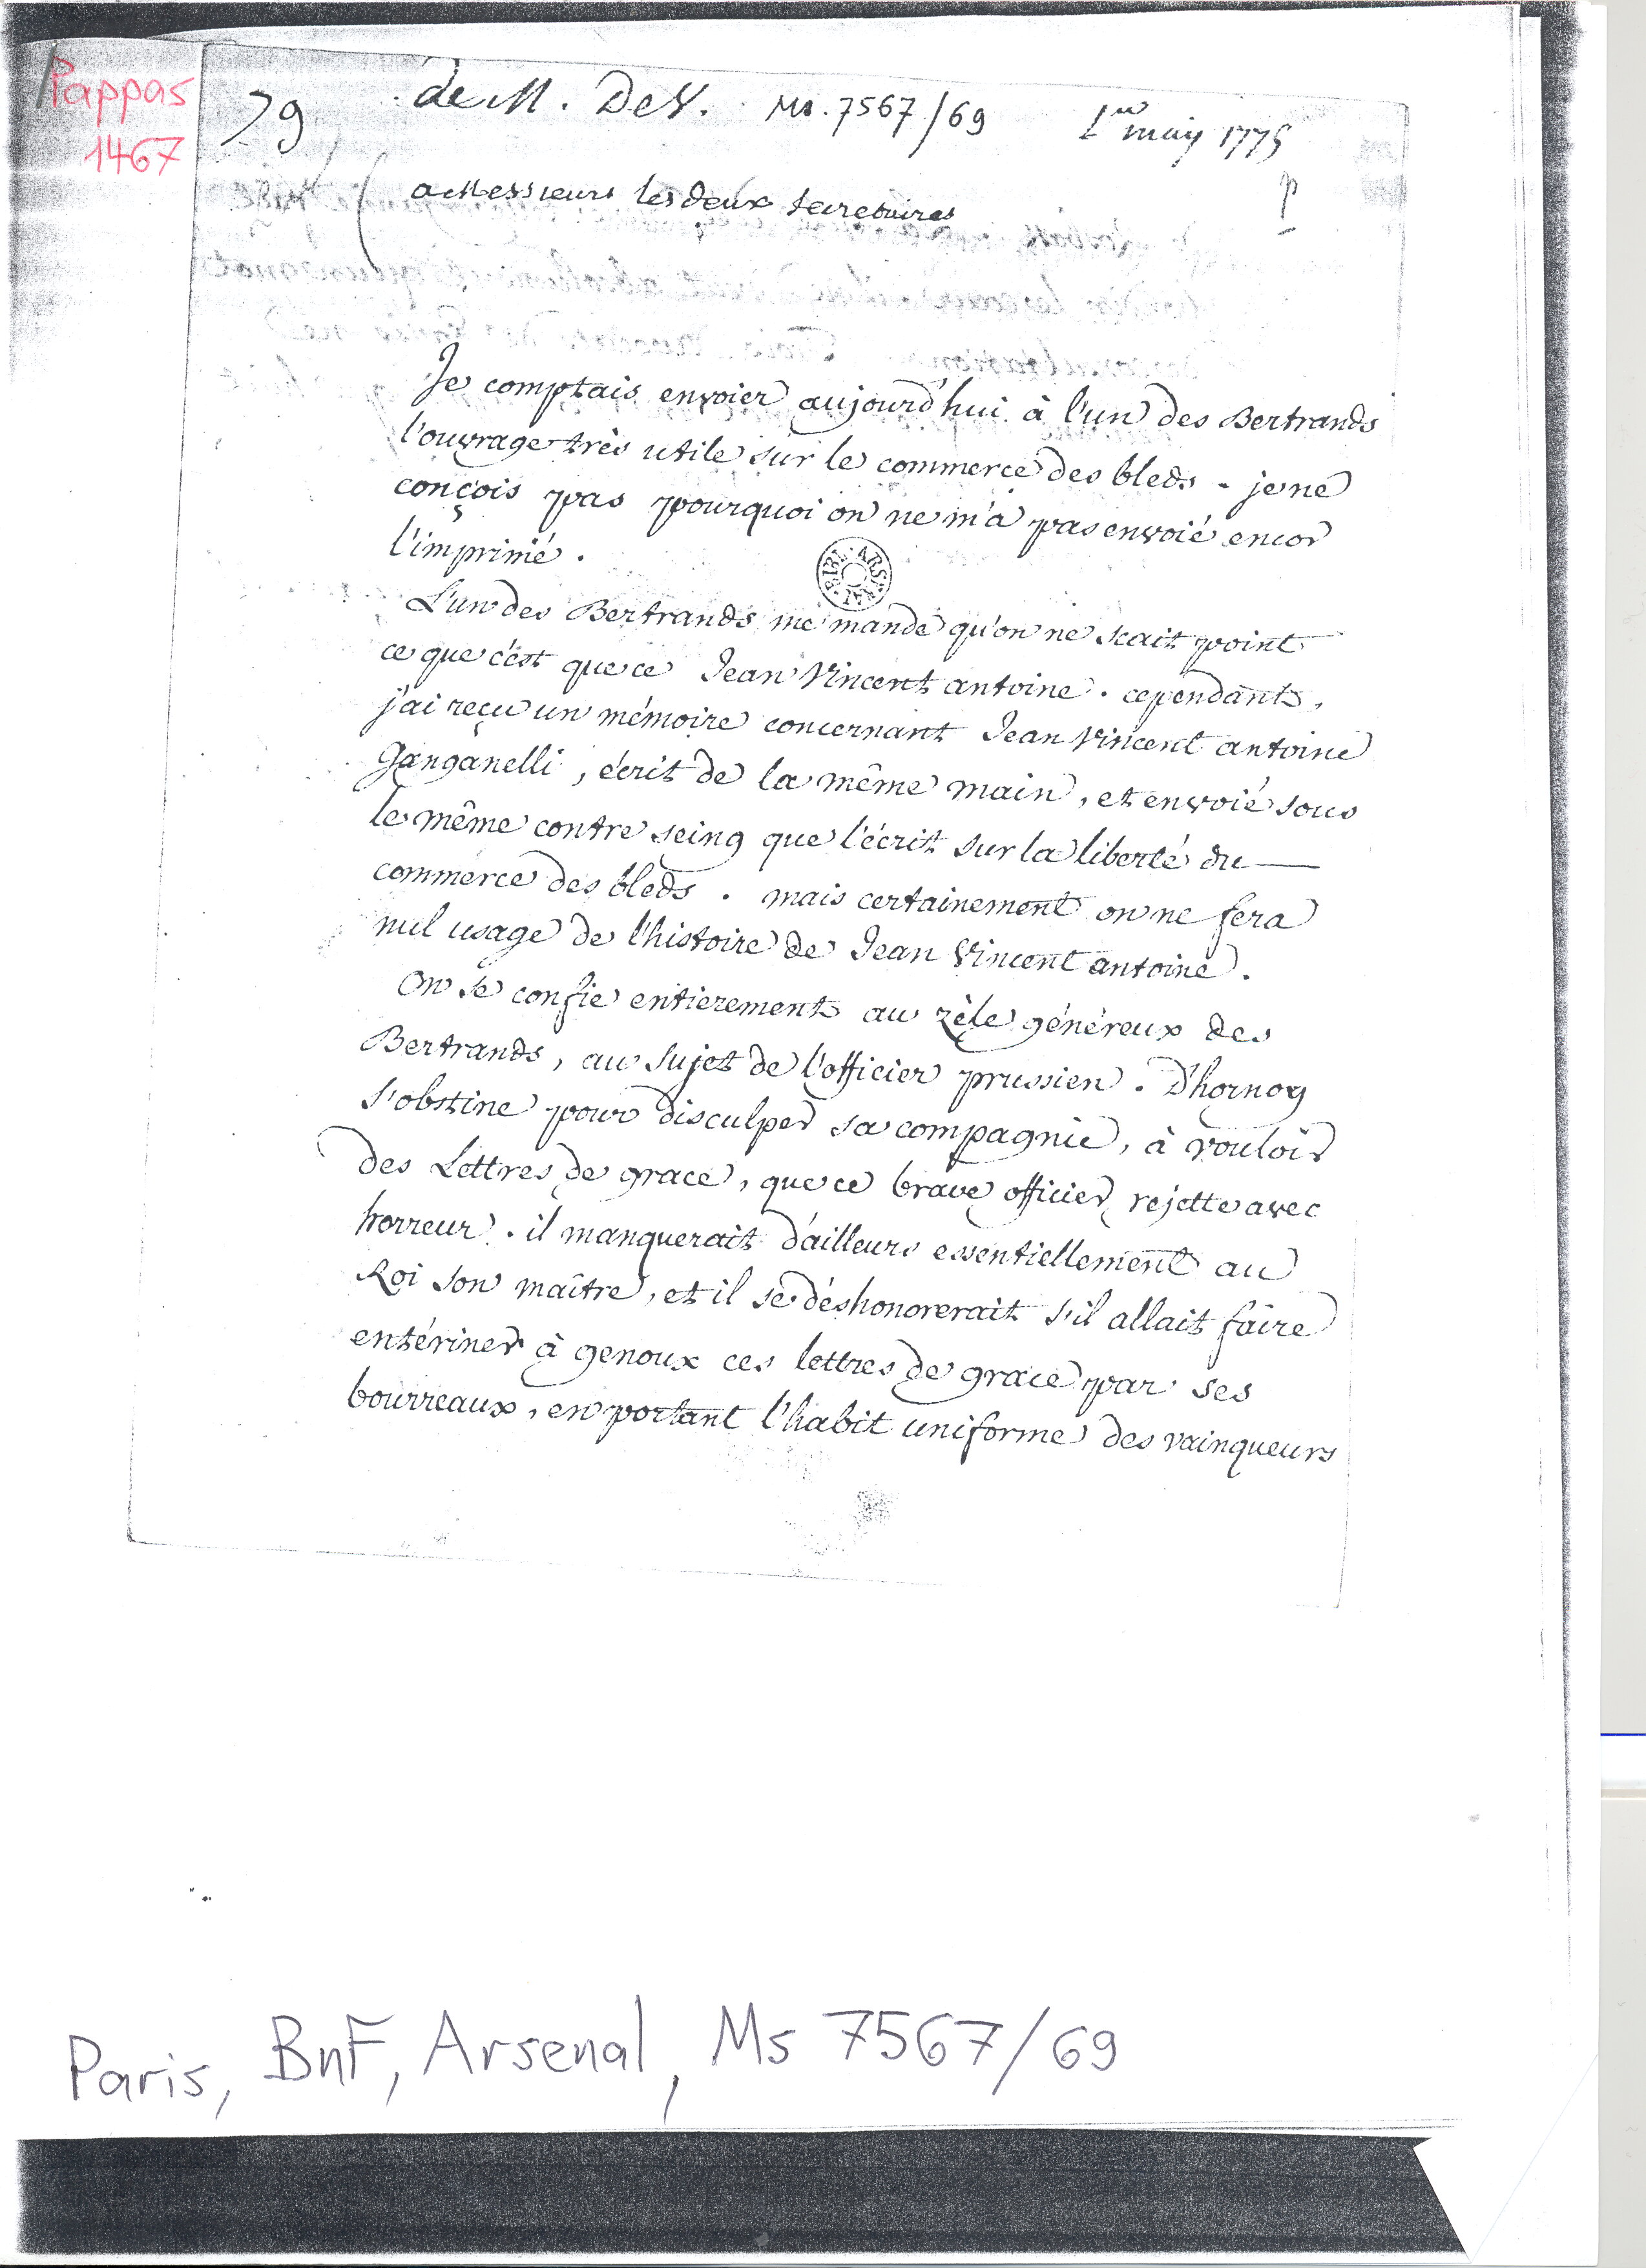 Pappas
1467
79
de M. De V.
Ms. 7567/69
1er may 1775
p
a Messieurs les deux secretaires
Je comptais envoier aujourd'hui à l'un des Bertrands
l'ouvrage très utile sur le commerce des bleds - je ne
conçois pas pourquoi on ne m'a pas envoié encor
l'imprimé.
BIBL. ARSENAL
L'un des Bertrands me mande qu'on ne scait point
ce que c'est que ce Jean Vincent antoine. cependant,
j'ai reçu un mémoire concernant Jean Vincent antoine
Ganganelli, écrit de la même main, et envoié sous
le même contre seing que l'écrit sur la liberté du —
commerce des bleds. mais certainement on ne fera
nul usage de l'histoire de Jean Vincent antoine.
On se confie entierement au zèle généreux des
Bertrands, au sujet de l'officier prussien. D'hornoy
s'obstine pour disculper sa compagnie, à vouloir
des Lettres de grace, que ce brave officier rejette avec
horreur. il manquerait d'ailleurs essentiellement au
Roi son maître, et il se déshonorerait s'il allait faire
entériner à genoux ces lettres de grace par ses
bourreaux, en portant l'habit uniforme des vainqueurs
Paris, BnF, Arsenal, Ms 7567/69